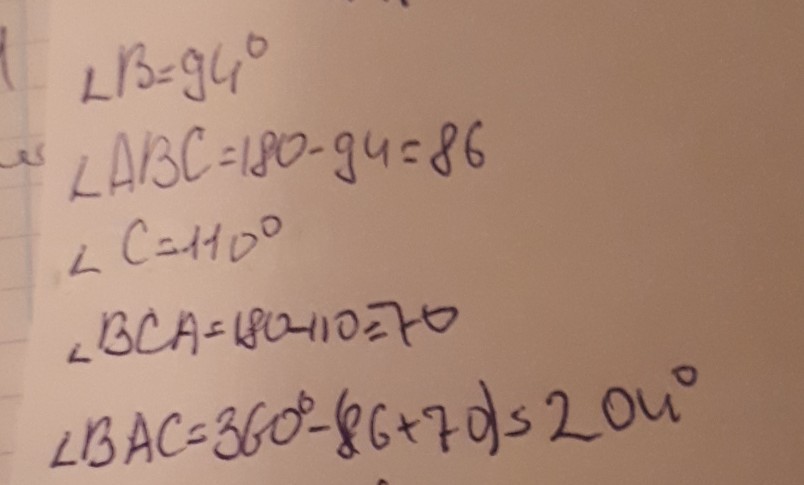 ∠B=94°
∠ABC=180-94=86
∠C=110°
∠BCA=180-110=70
∠BAC=360°-(86+70)=204°